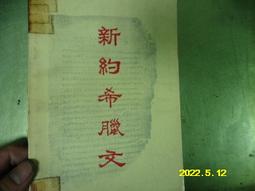 新約希臘文
2022.5.12